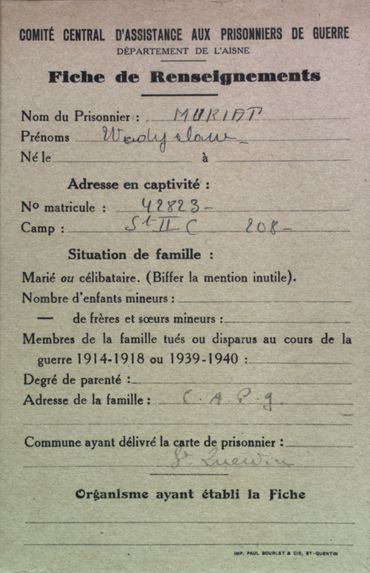 COMITÉ CENTRAL D'ASSISTANCE AUX PRISONNIERS DE GUERRE
DÉPARTEMENT DE L'AISNE
Fiche de Renseignements
Nom du Prisonnier : MURIAT
Prénoms Wadyslaw
Né le à
Adresse en captivité :
No matricule : 42823
Camp : St II C 208
Situation de famille :
Marié ou célibataire. (Biffer la mention inutile).
Nombre d'enfants mineurs :
— de frères et sœurs mineurs :
Membres de la famille tués ou disparus au cours de la
guerre 1914-1918 ou 1939-1940 :
Degré de parenté :
Adresse de la famille : C.A.P.g.
Commune ayant délivré la carte de prisonnier :
St Quentin
Organisme ayant établi la Fiche
IMP. PAUL BOURLET & CIE, ST-QUENTIN